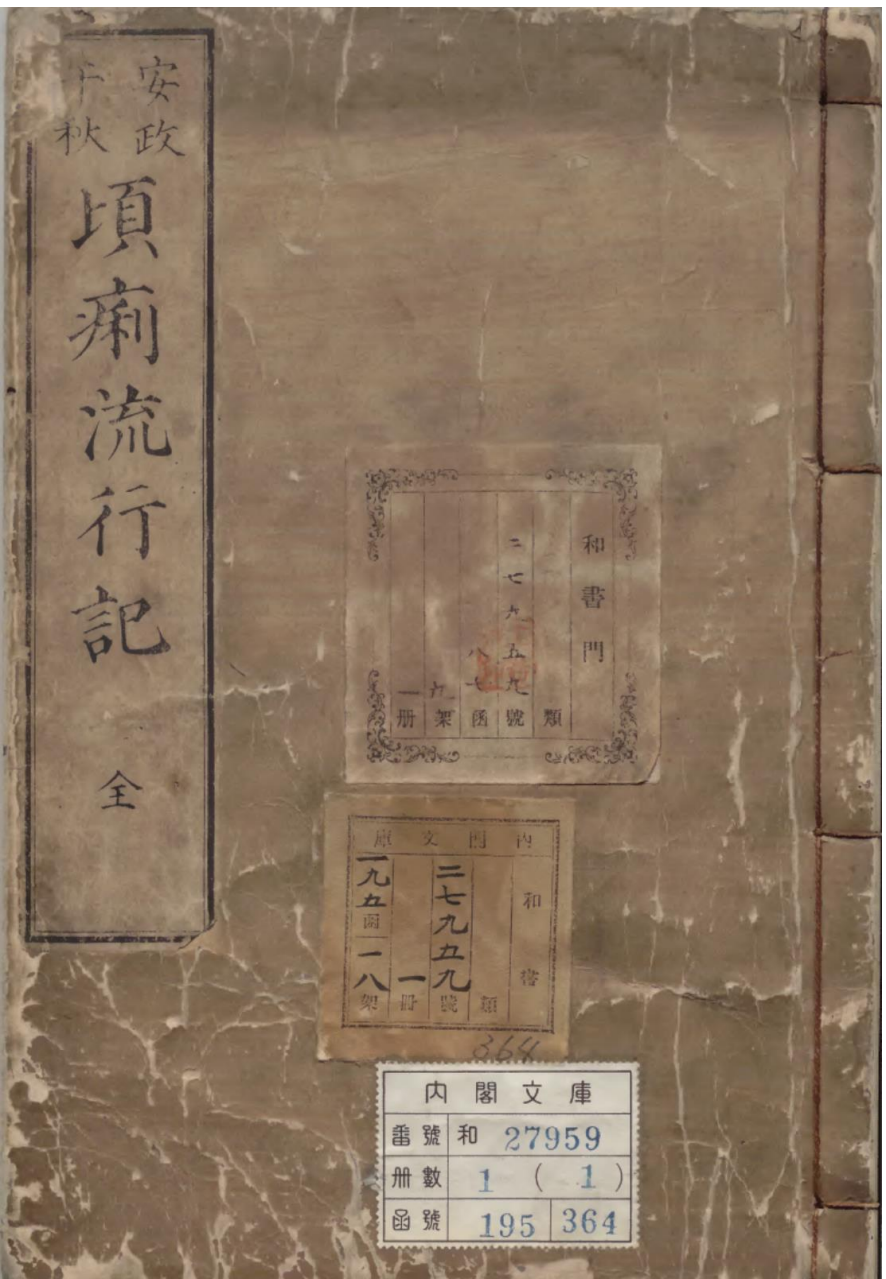 安政
午秋
頃痢流行記
全
和書門
類
二七九五九號
八七函
九架
一册
内閣文庫
和書
類
二七九五九號
一冊
一九五函
一八架
364
内閣文庫
番號 和 27959
冊數 1 ( 1 )
函號 195 364